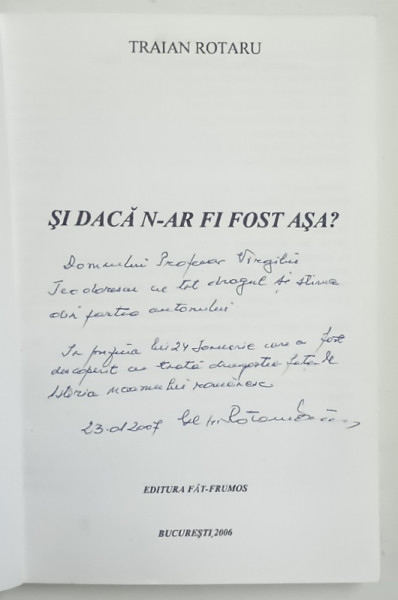 TRAIAN ROTARU
ŞI DACĂ N-AR FI FOST AŞA?
Domnului Profesor Virgiliu
Teodorescu cu tot dragul și stima
din partea autorului
În preajma lui 24 Ianuarie care a fost
descoperit cu toată dragostea față de
Istoria neamului românesc
23.01.2007
EDITURA FĂT-FRUMOS
BUCUREŞTI, 2006